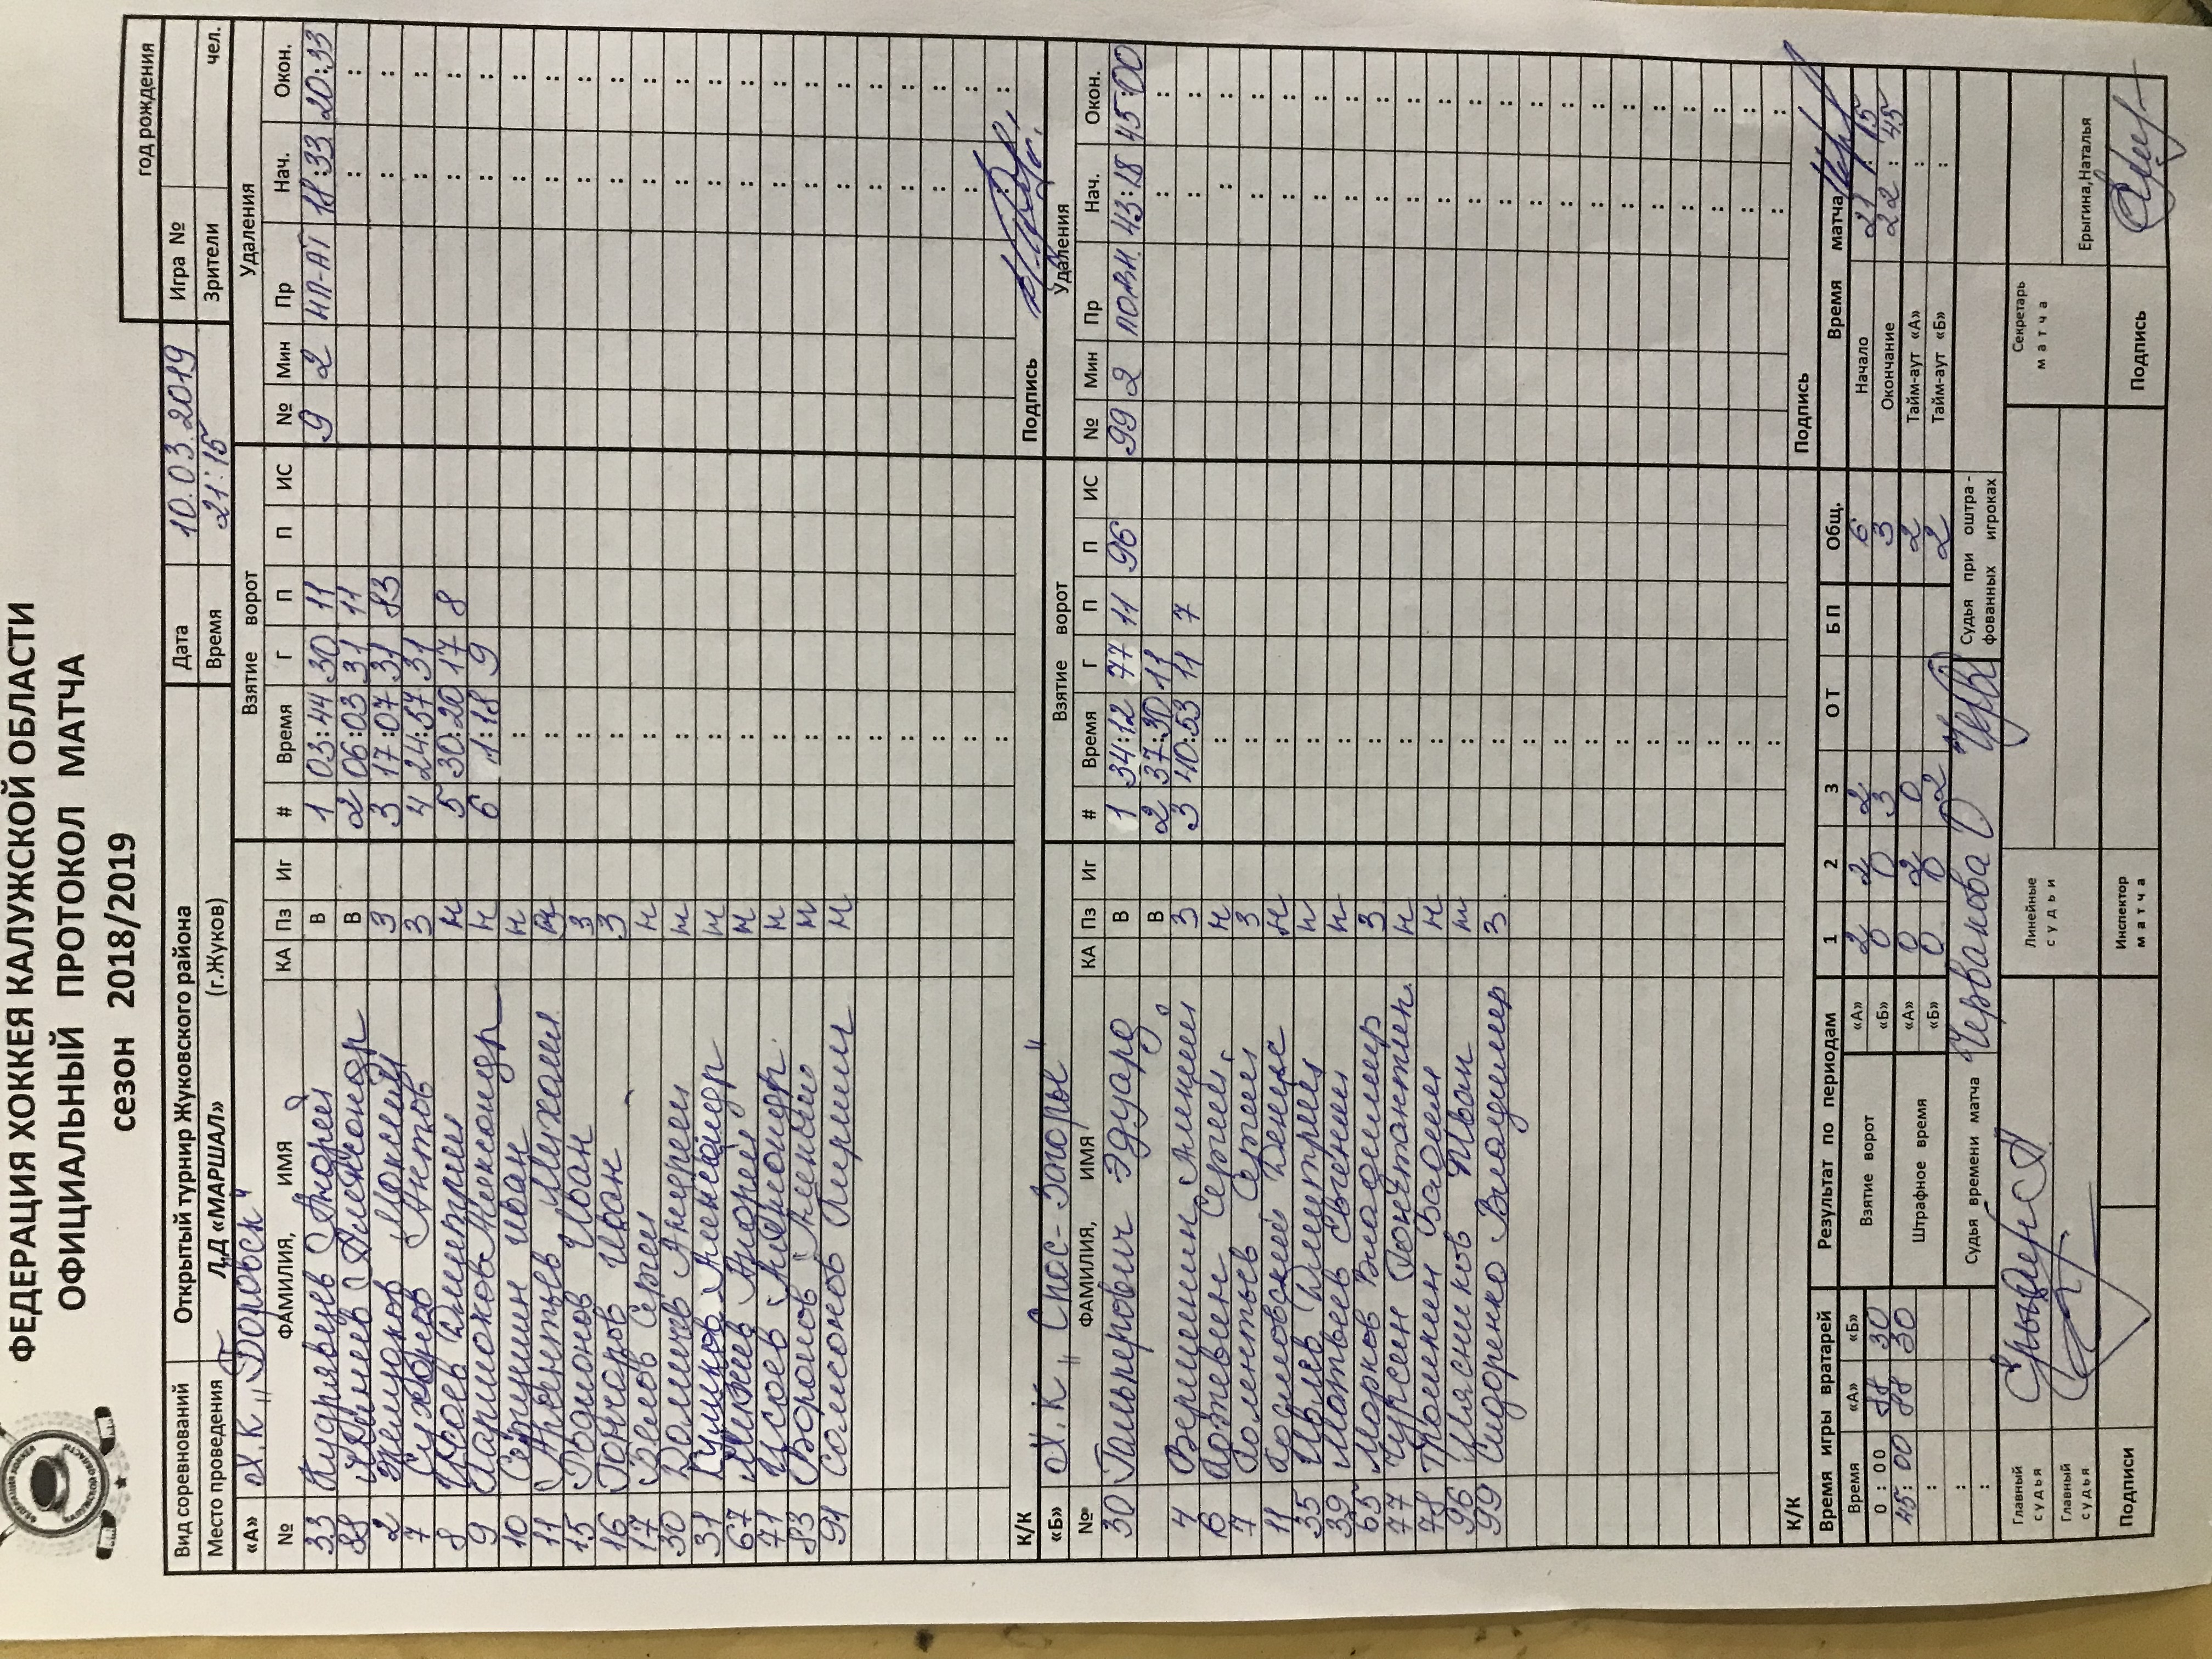 ФЕДЕРАЦИЯ ХОККЕЯ КАЛУЖСКОЙ ОБЛАСТИ
ОФИЦИАЛЬНЫЙ ПРОТОКОЛ МАТЧА
сезон 2018/2019
год рождения
Вид соревнований Открытый турнир Жуковского района Дата 10.03.2019 Игра №
Место проведения ЛД «МАРШАЛ» (г.Жуков) Время 21:15 Зрители чел.
«А» Х.К. „Боровск" Взятие ворот Удаления
№ ФАМИЛИЯ, ИМЯ КА Пз Иг # Время Г П П ИС № Мин Пр Нач. Окон.
33 Кудрявцев Андрей В 1 03:44 30 11 9 2 НП-АТ 18:33 20:33
88 Александр В 2 06:03 31 11
2 Максим З 3 17:07 31 83
7 Суханов Антон З 4 24:57 31
8 Дмитрий Н 5 30:20 17 8
9 Ларионов Александр Н 6 1:18 9
10 Иван Н
11 Михаил Н
15 Родионов Иван З
16 Гончаров Иван З
17 Белов Сергей Н
30 Андрей Н
31 Александр Н
67 Андрей Н
71 Исаев Александр Н
83 Воронов Алексей Н
91 Самсонов Кирилл Н
К/К Подпись
«Б» Х.К. „Спас-Загорье" Взятие ворот Удаления
№ ФАМИЛИЯ, ИМЯ КА Пз Иг # Время Г П П ИС № Мин Пр Нач. Окон.
30 Гальперович Эдуард В 1 34:12 77 11 96 99 2 43:18 45:00
В 2 37:30 11
4 Вершинин Алексей З 3 40:53 11 7
6 Сергей Н
7 Сергей З
11 Денис Н
35 Дмитрий Н
39 Матвеев Евгений Н
65 Марков Владимир З
77 Чурсин Константин Н
78 Трошкин Вадим Н
96 Мясников Иван Н
99 Сидоренко Владимир З
К/К Подпись
Время игры вратарей Результат по периодам 1 2 3 ОТ БП Общ. Время матча
Время «А» «Б» Взятие ворот «А» 2 2 2 6 Начало 21:15
0:00 88 30 «Б» 0 0 3 3 Окончание 22:45
45:00 88 30 Штрафное время «А» 0 2 0 2 Тайм-аут «А» :
: «Б» 0 0 2 2 Тайм-аут «Б» :
: Судья времени матча Судья при оштрафованных игроках
Главный судья Линейные судьи Секретарь матча
Главный судья Ерыгина,Наталья
Подписи Инспектор матча Подпись